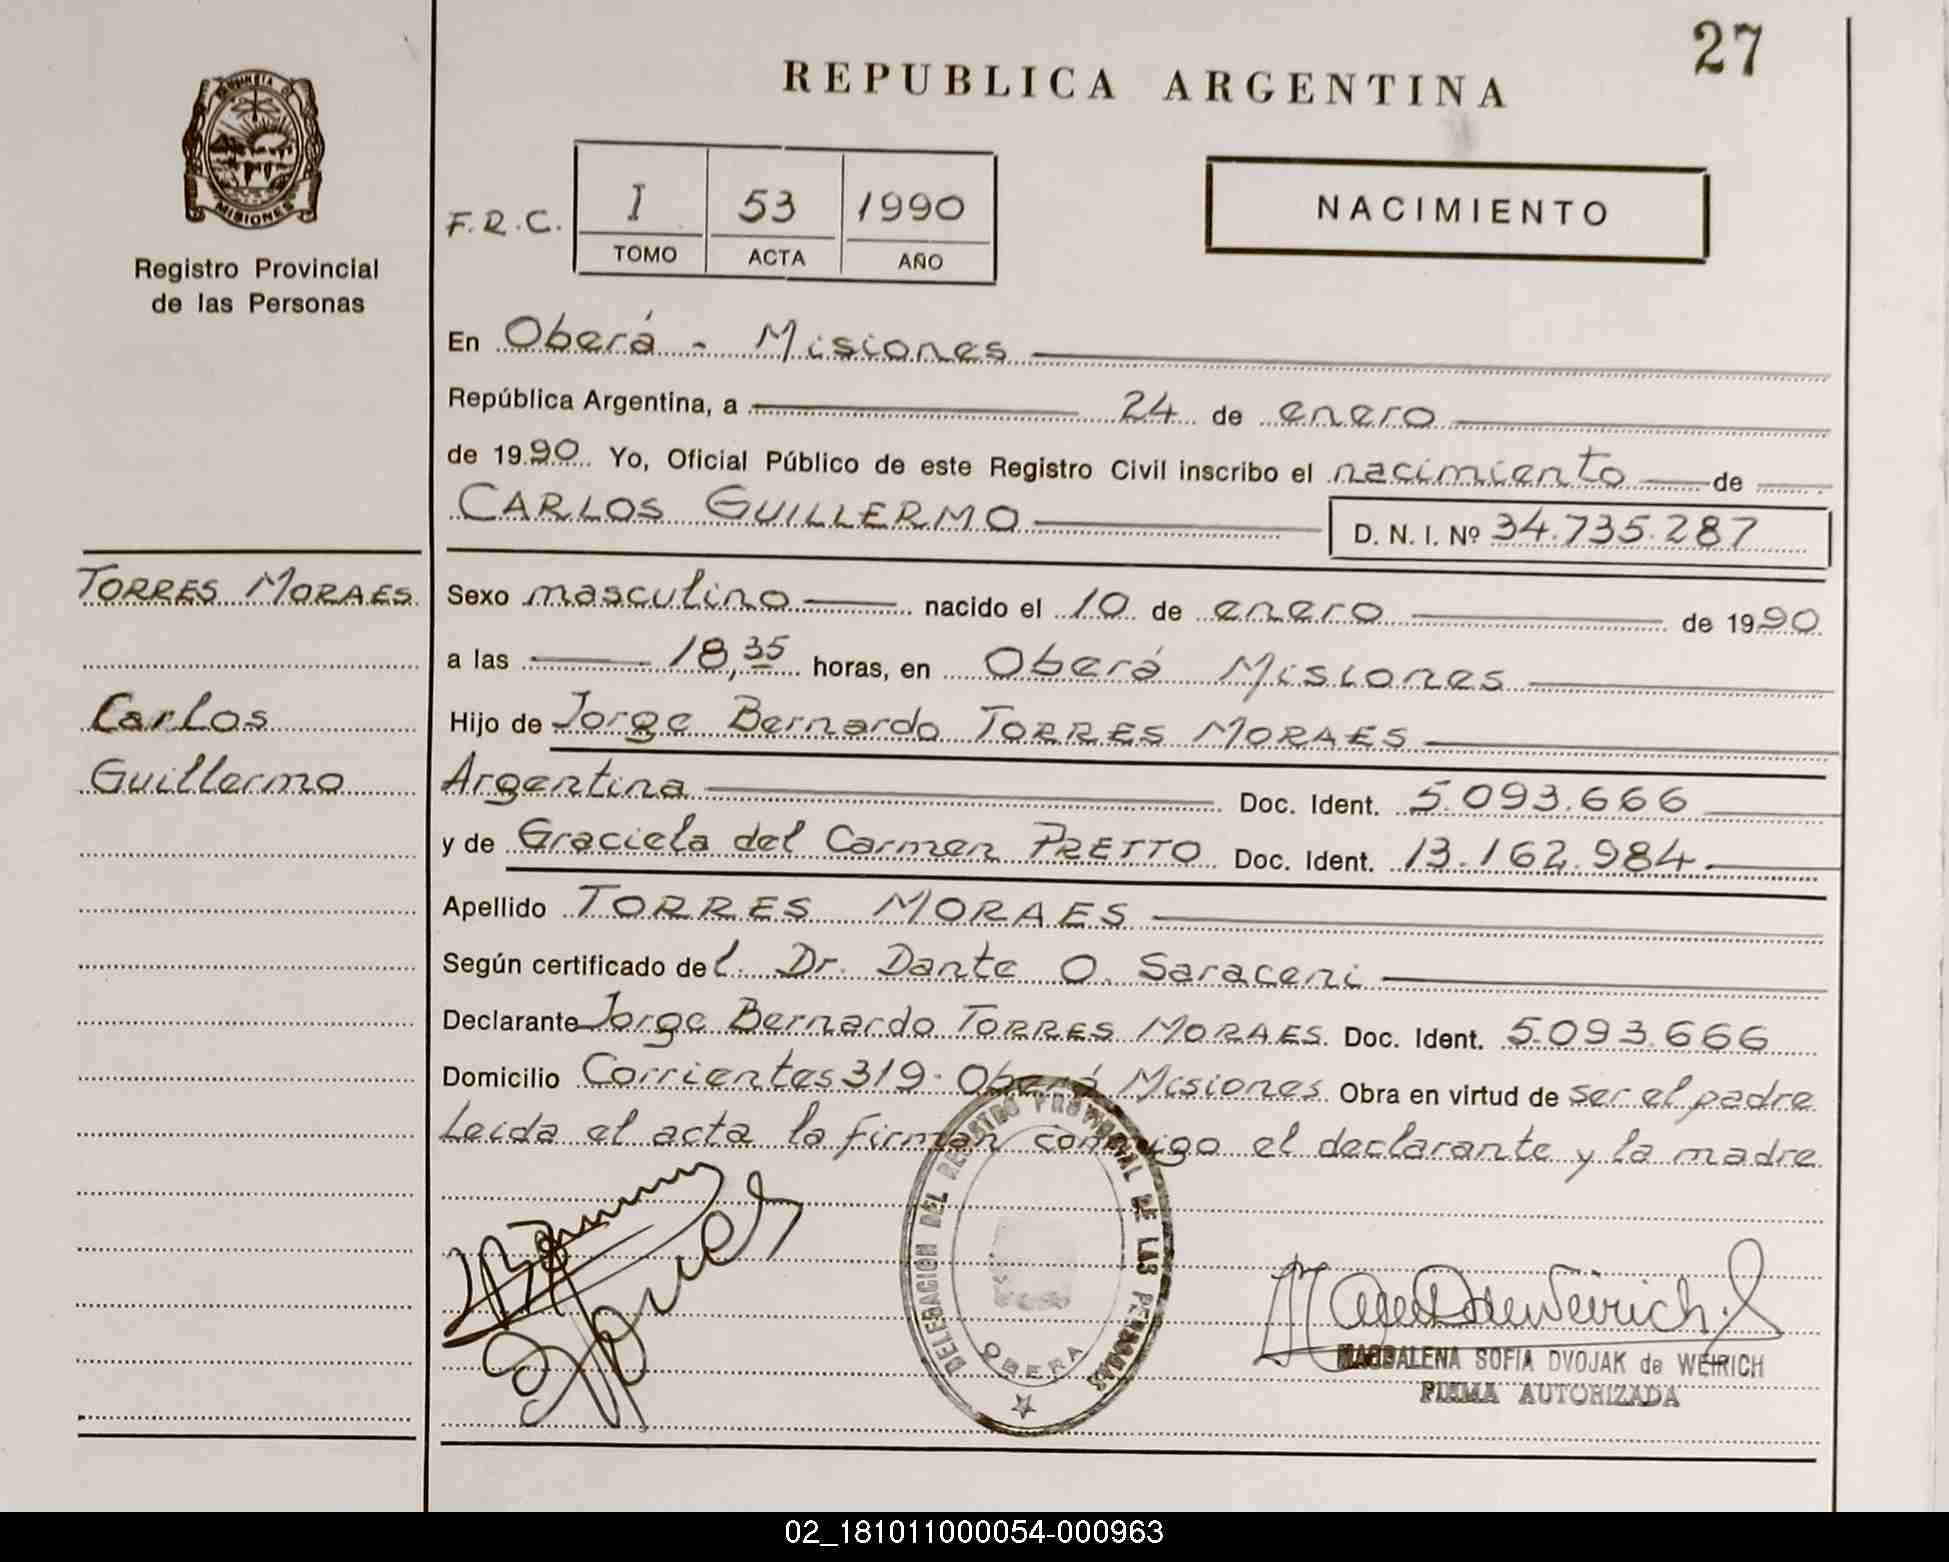 27
REPUBLICA ARGENTINA
PROVINCIA DE MISIONES
Registro Provincial
de las Personas
F.R.C. I 53 1990
TOMO ACTA AÑO
NACIMIENTO
En Oberá - Misiones
República Argentina, a 24 de enero
de 1990 Yo, Oficial Público de este Registro Civil inscribo el nacimiento de
CARLOS GUILLERMO D. N. I. Nº 34.735.287
TORRES MORAES
Carlos
Guillermo
Sexo masculino nacido el 10 de enero de 1990
a las 18,35 horas, en Oberá Misiones
Hijo de Jorge Bernardo TORRES MORAES
Argentina Doc. Ident. 5.093.666
y de Graciela del Carmen PRETTO Doc. Ident. 13.162.984
Apellido TORRES MORAES
Según certificado del Dr. Dante O. Saraceni
Declarante Jorge Bernardo TORRES MORAES Doc. Ident. 5.093.666
Domicilio Corrientes 319 - Oberá Misiones Obra en virtud de ser el padre
Leída el acta la firman conmigo el declarante y la madre
DELEGACION DEL REGISTRO PROVINCIAL DE LAS PERSONAS
OBERA
MAGDALENA SOFIA DVOJAK de WEIRICH
FIRMA AUTORIZADA
02_181011000054-000963